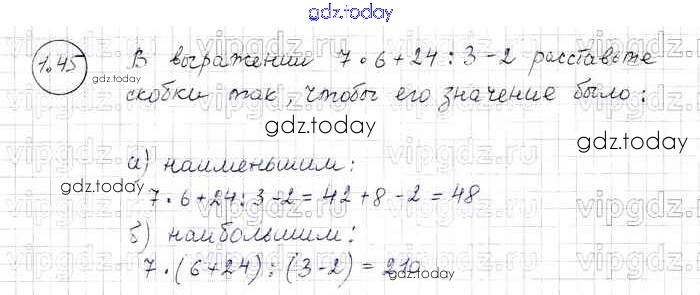 gdz.today
1.45
В выражении 7 · 6 + 24 : 3 - 2 расставьте
скобки так, чтобы его значение было:
gdz.today
gdz.today
vipgdz.ru
а) наименьшим:
gdz.today
7 · 6 + 24 : 3 - 2 = 42 + 8 - 2 = 48
б) наибольшим:
gdz.today
7 · (6 + 24) : (3 - 2) = 210